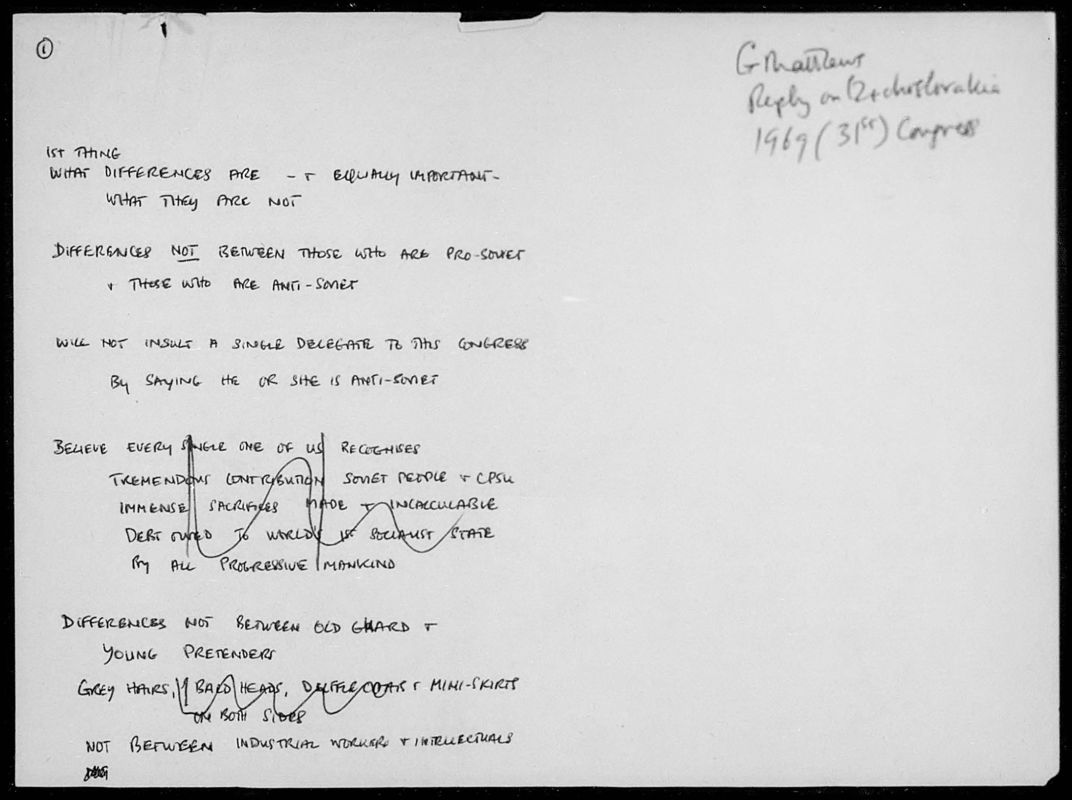 ①
G Matthews
Reply on Czechoslovakia
1969 (31st) Congress
1ST THING
WHAT DIFFERENCES ARE - + EQUALLY IMPORTANT -
WHAT THEY ARE NOT
DIFFERENCES NOT BETWEEN THOSE WHO ARE PRO-SOVIET
+ THOSE WHO ARE ANTI-SOVIET
WILL NOT INSULT A SINGLE DELEGATE TO THIS CONGRESS
By SAYING HE OR SHE IS ANTI-SOVIET
BELIEVE EVERY SINGLE ONE OF US RECOGNISES
TREMENDOUS CONTRIBUTION SOVIET PEOPLE + CPSU
IMMENSE SACRIFICES MADE + INCALCULABLE
DEBT OWED TO WORLD'S 1ST SOCIALIST STATE
By ALL PROGRESSIVE MANKIND
DIFFERENCES NOT BETWEEN OLD GUARD +
YOUNG PRETENDERS
GREY HAIRS, BALD HEADS, DUFFLECOATS + MINI-SKIRTS
ON BOTH SIDES
NOT BETWEEN INDUSTRIAL WORKERS + INTELLECTUALS